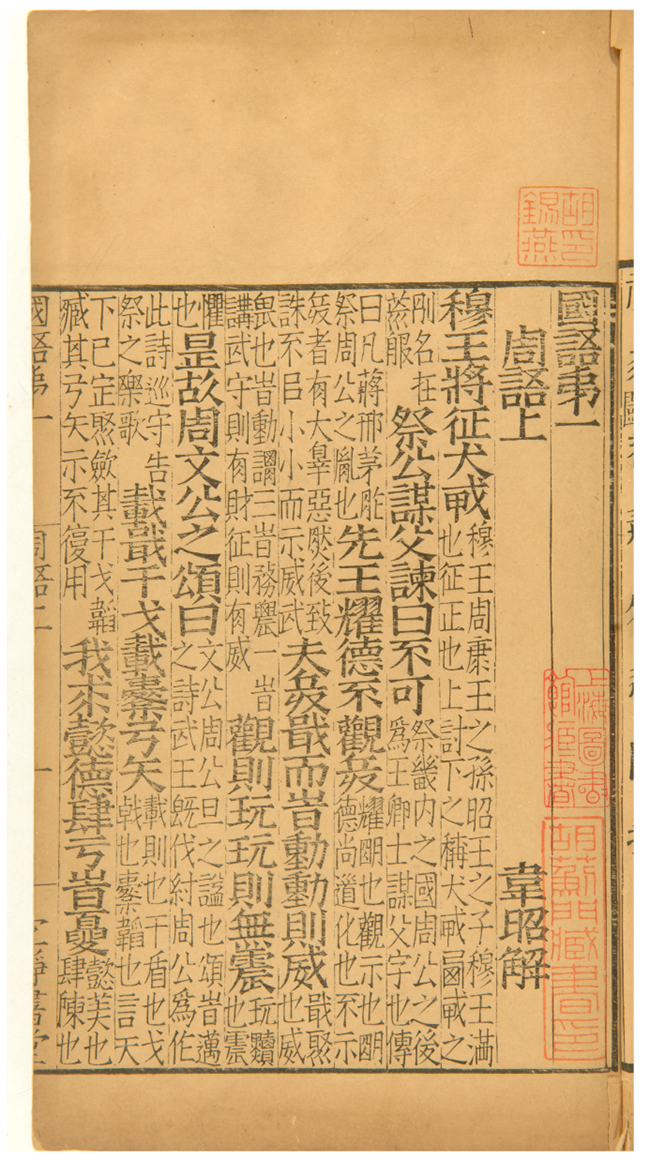 國語弟一
周語上 韋昭解
穆王將征犬戎 穆王周康王之孫昭王之子穆王滿
也征正也上討下之稱犬戎西戎之
別名在
荒服 祭公謀父諫曰不可 祭畿內之國周公之後
爲王卿士謀父字也傳
曰凡蔣邢茅胙
祭周公之胤也 先王耀德不觀兵 耀明也觀示也明
德尚道化也不示
兵者有大辠惡然後致
誅不㠯小小而示威武 夫兵戢而旹動動則威 戢聚
也威
畏也旹動謂三旹務農一旹
講武守則有財征則有威 觀則玩玩則無震 玩黷
也震
懼
也 是故周文公之頌曰 文公周公旦之謚也頌旹邁
之詩武王旣伐紂周公爲作
此詩巡守告
祭之樂歌 載戢干戈載櫜弓矢 載則也干盾也戈
戟也櫜韜也言天
下已定聚斂其干戈韜
臧其弓矢示不復用 我求懿德肆亏旹夏 懿美也
肆陳也
國語弟一 周語二 一
胡印錫燕
上海圖書館藏書
藏書印